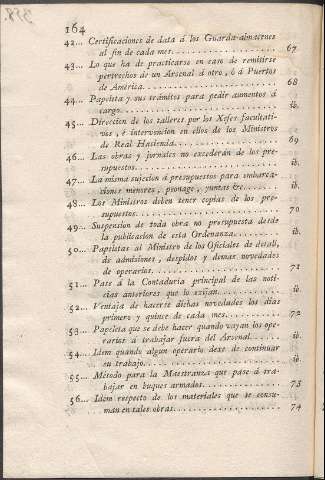 164
42... Certificaciones de data á los Guarda-almacenes
al fin de cada mes. . . . . . . . . . . . . . . . 67
43... Lo que ha de practicarse en caso de remitirse
pertrechos de un Arsenal á otro, ó á Puertos
de América. . . . . . . . . . . . . . . . 68
44... Papeleta y sus trámites para pedir aumentos á
cargo. . . . . . . . . . . . . . . . ib.
45... Direccion de los talleres por los Xefes facultati-
vos, é intervencion en ellos de los Ministros
de Real Hacienda. . . . . . . . . . . . . . . . 69
46... Las obras y jornales no excederán de los pre-
supuestos. . . . . . . . . . . . . . . . ib.
47... La misma sujecion á presupuestos para embarca-
ciones menores, peonage, yuntas &c. . . . . . ib.
48... Los Ministros deben tener copias de los pre-
supuestos. . . . . . . . . . . . . . . . 70
49... Suspension de toda obra no presupuesta desde
la publicacion de esta Ordenanza. . . . . . . . ib.
50... Papeletas al Ministro de los Oficiales de detall,
de admisiones, despidos y demas novedades
de operarios. . . . . . . . . . . . . . . . 71
51... Pase á la Contaduría principal de las noti-
cias anteriores que lo exijan. . . . . . . . . . ib.
52... Ventaja de hacerse dichas novedades los dias
primero y quince de cada mes. . . . . . . . . . 72
53... Papeleta que se debe hacer quando vayan los ope-
rarios á trabajar fuera del Arsenal. . . . . . . ib.
54... Idem quando algun operario dexe de continuar
su trabajo. . . . . . . . . . . . . . . . ib.
55... Método para la Maestranza que pase á tra-
bajar en buques armados. . . . . . . . . . . . 73
56... Idem respecto de los materiales que se consu-
man en tales obras. . . . . . . . . . . . . . . . 74